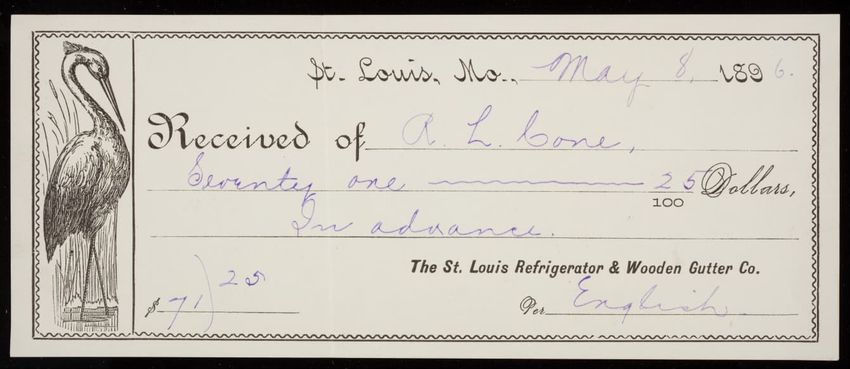 St. Louis, Mo., May 8, 1896.
Received of R. L. Cone,
Seventy one 25/100 Dollars,
In advance.
The St. Louis Refrigerator & Wooden Gutter Co.
$ 71) 25 Per English